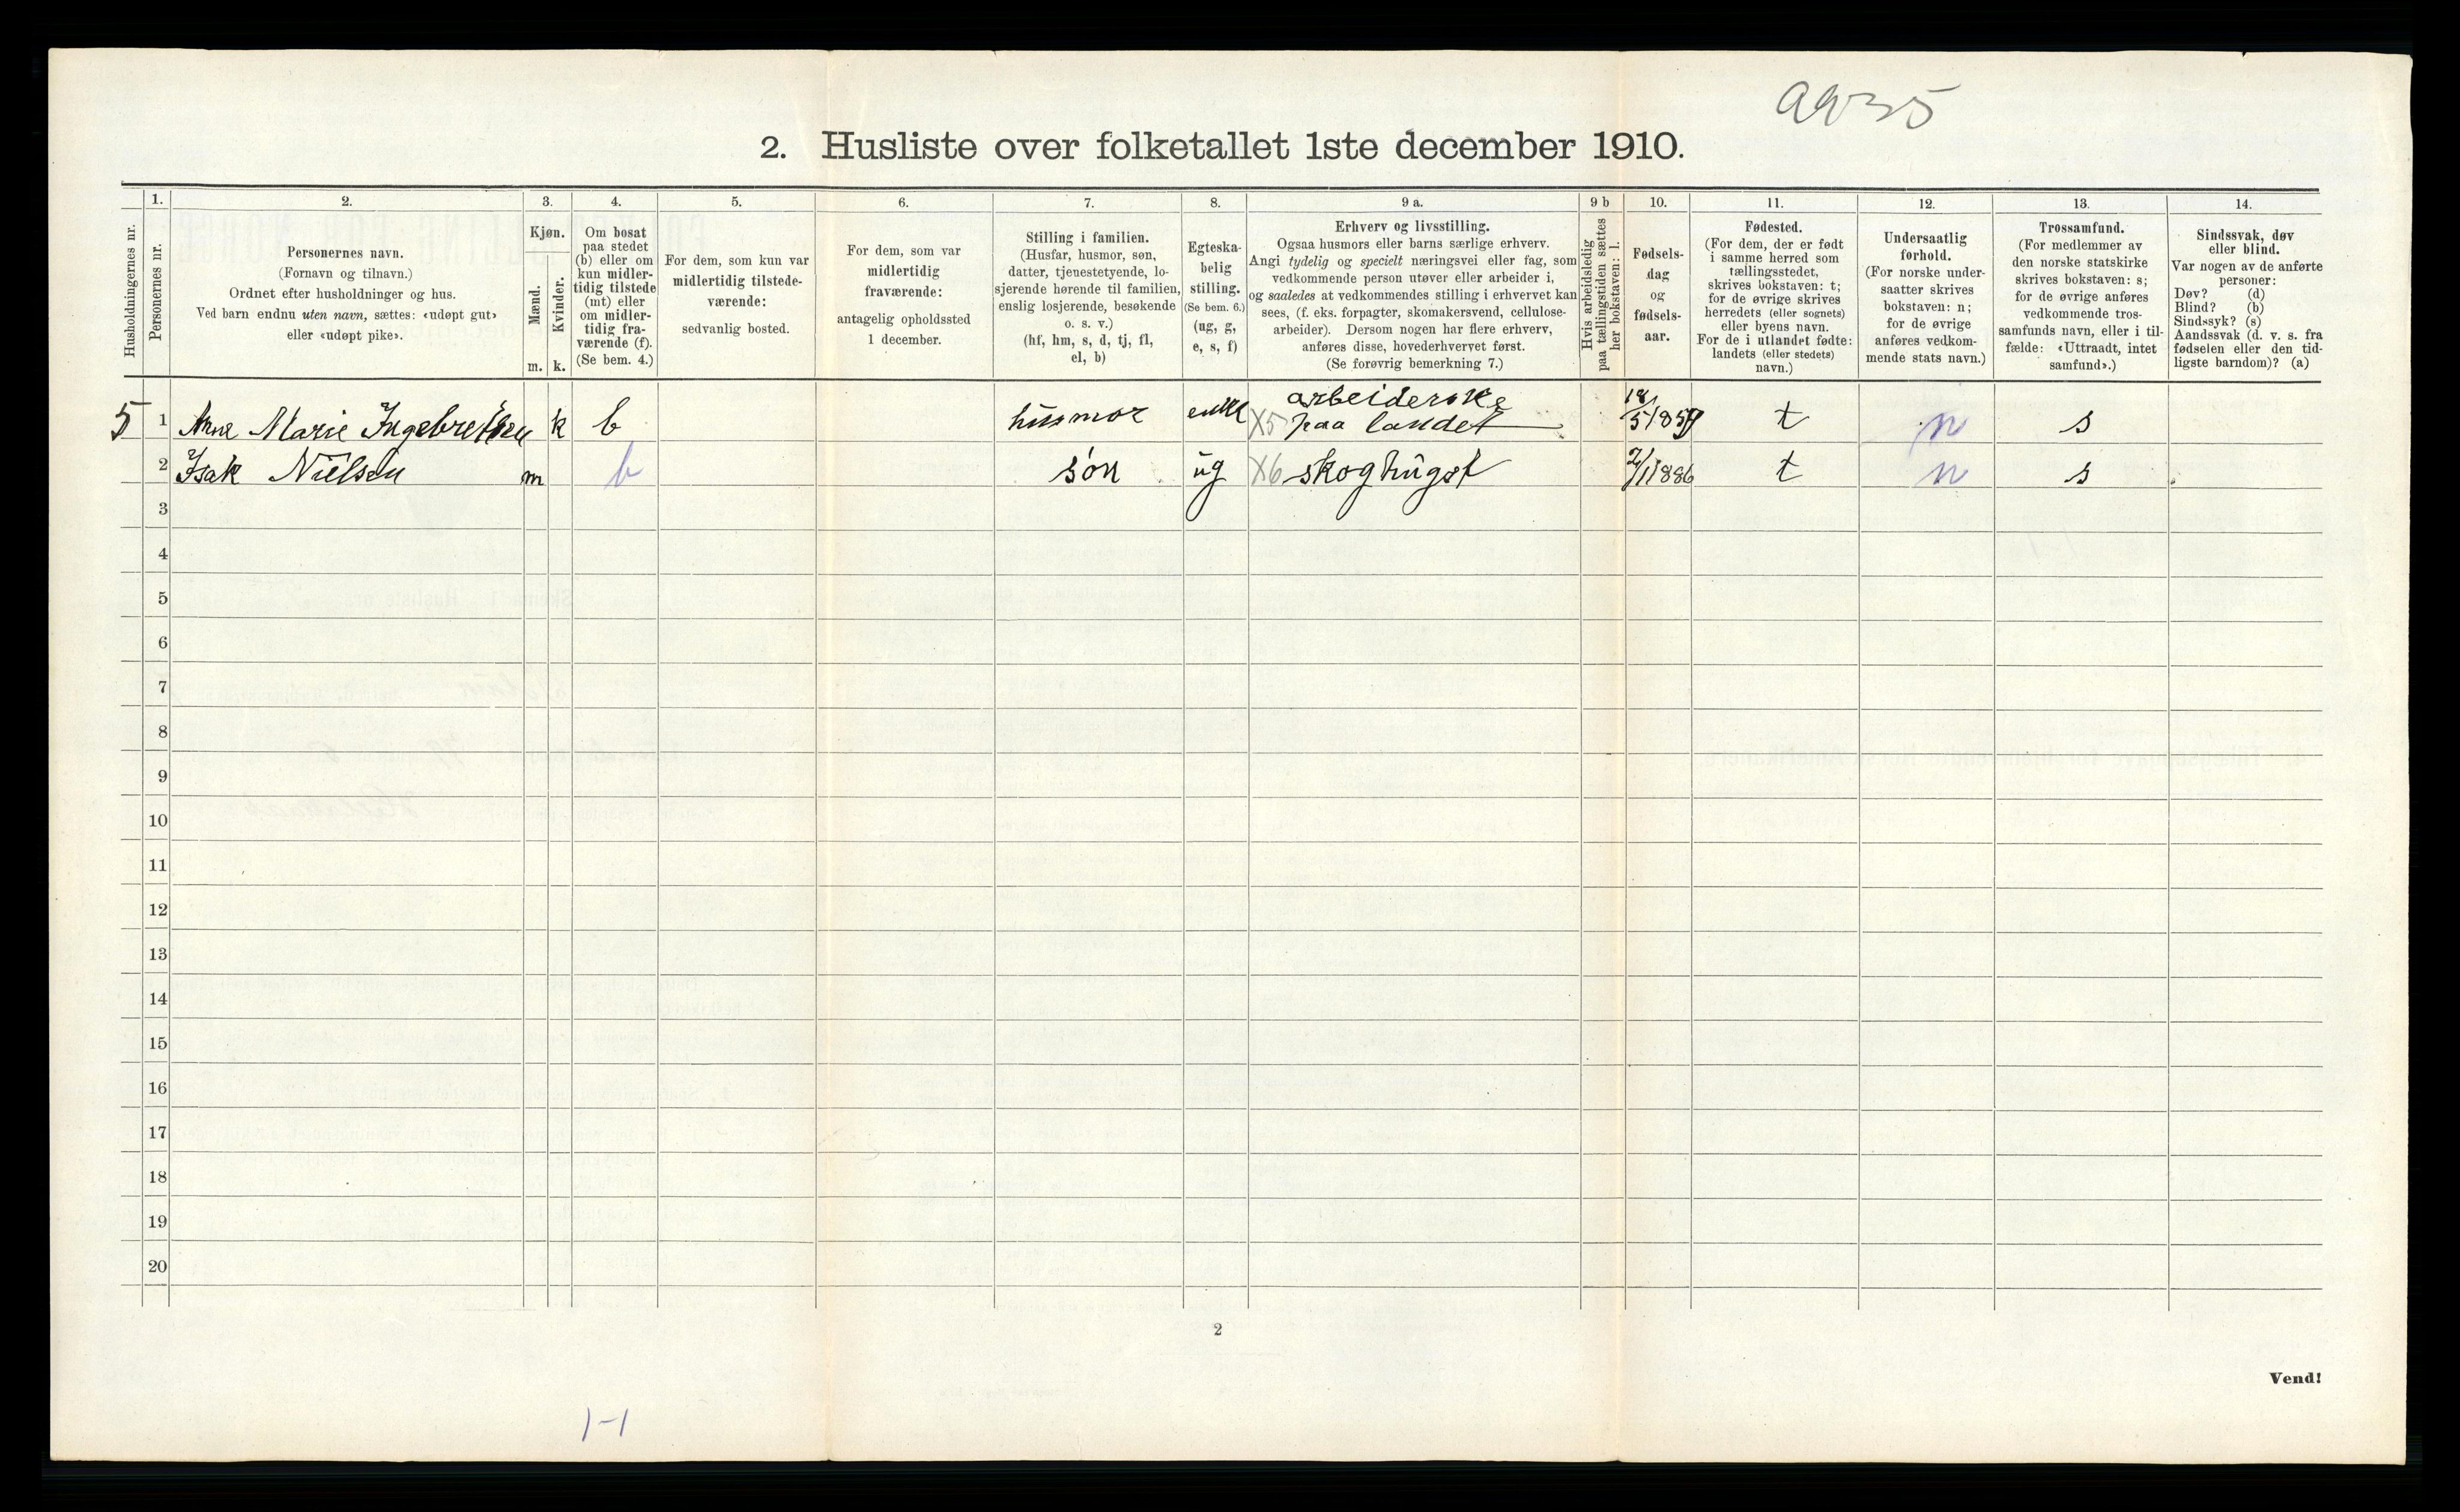 2. Husliste over folketallet 1ste december 1910.
Husholdningernes nr.
1.
Personernes nr.
2.
Personernes navn.
(Fornavn og tilnavn.)
Ordnet efter husholdninger og hus.
Ved barn endnu uten navn, sættes: «udøpt gut»
eller «udøpt pike».
3.
Kjøn.
Mænd.
Kvinder.
m. k.
4.
Om bosat
paa stedet
(b) eller om
kun midler-
tidig tilstede
(mt) eller
om midler-
tidig fra-
værende (f).
(Se bem. 4.)
5.
For dem, som kun var
midlertidig tilstede-
værende:
sedvanlig bosted.
6.
For dem, som var
midlertidig
fraværende:
antagelig opholdssted
1 december.
7.
Stilling i familien.
(Husfar, husmor, søn,
datter, tjenestetyende, lo-
sjerende hørende til familien,
enslig losjerende, besøkende
o. s. v.)
(hf, hm, s, d, tj, fl,
el, b)
8.
Egteska-
belig
stilling.
(Se bem. 6.)
(ug, g,
e, s, f)
9 a.
Erhverv og livsstilling.
Ogsaa husmors eller barns særlige erhverv.
Angi tydelig og specielt næringsvei eller fag, som
vedkommende person utøver eller arbeider i,
og saaledes at vedkommendes stilling i erhvervet kan
sees, (f. eks. forpagter, skomakersvend, cellulose-
arbeider). Dersom nogen har flere erhverv,
anføres disse, hovederhvervet først.
(Se forøvrig bemerkning 7.)
9 b
Hvis arbeidsledig
paa tællingstiden sættes
her bokstaven: l.
10.
Fødsels-
dag
og
fødsels-
aar.
11.
Fødested.
(For dem, der er født
i samme herred som
tællingsstedet,
skrives bokstaven: t;
for de øvrige skrives
herredets (eller sognets)
eller byens navn.
For de i utlandet fødte:
landets (eller stedets)
navn.)
12.
Undersaatlig
forhold.
(For norske under-
saatter skrives
bokstaven: n;
for de øvrige
anføres vedkom-
mende stats navn.)
13.
Trossamfund.
(For medlemmer av
den norske statskirke
skrives bokstaven: s;
for de øvrige anføres
vedkommende tros-
samfunds navn, eller i til-
fælde: «Uttraadt, intet
samfund».)
14.
Sindssvak, døv
eller blind.
Var nogen av de anførte
personer:
Døv? (d)
Blind? (b)
Sindssyk? (s)
Aandssvak (d. v. s. fra
fødselen eller den tid-
ligste barndom)? (a)
5 1 Anne Marie Ingebretsen k b husmor enke X5 arbeiderske paa landet 18/5 1859 t n s
2 Isak Nielsen m b søn ug X6 skoghugst 2/1 1886 t n s
3
4
5
6
7
8
9
10
11
12
13
14
15
16
17
18
19
20
2
Vend!
1-1